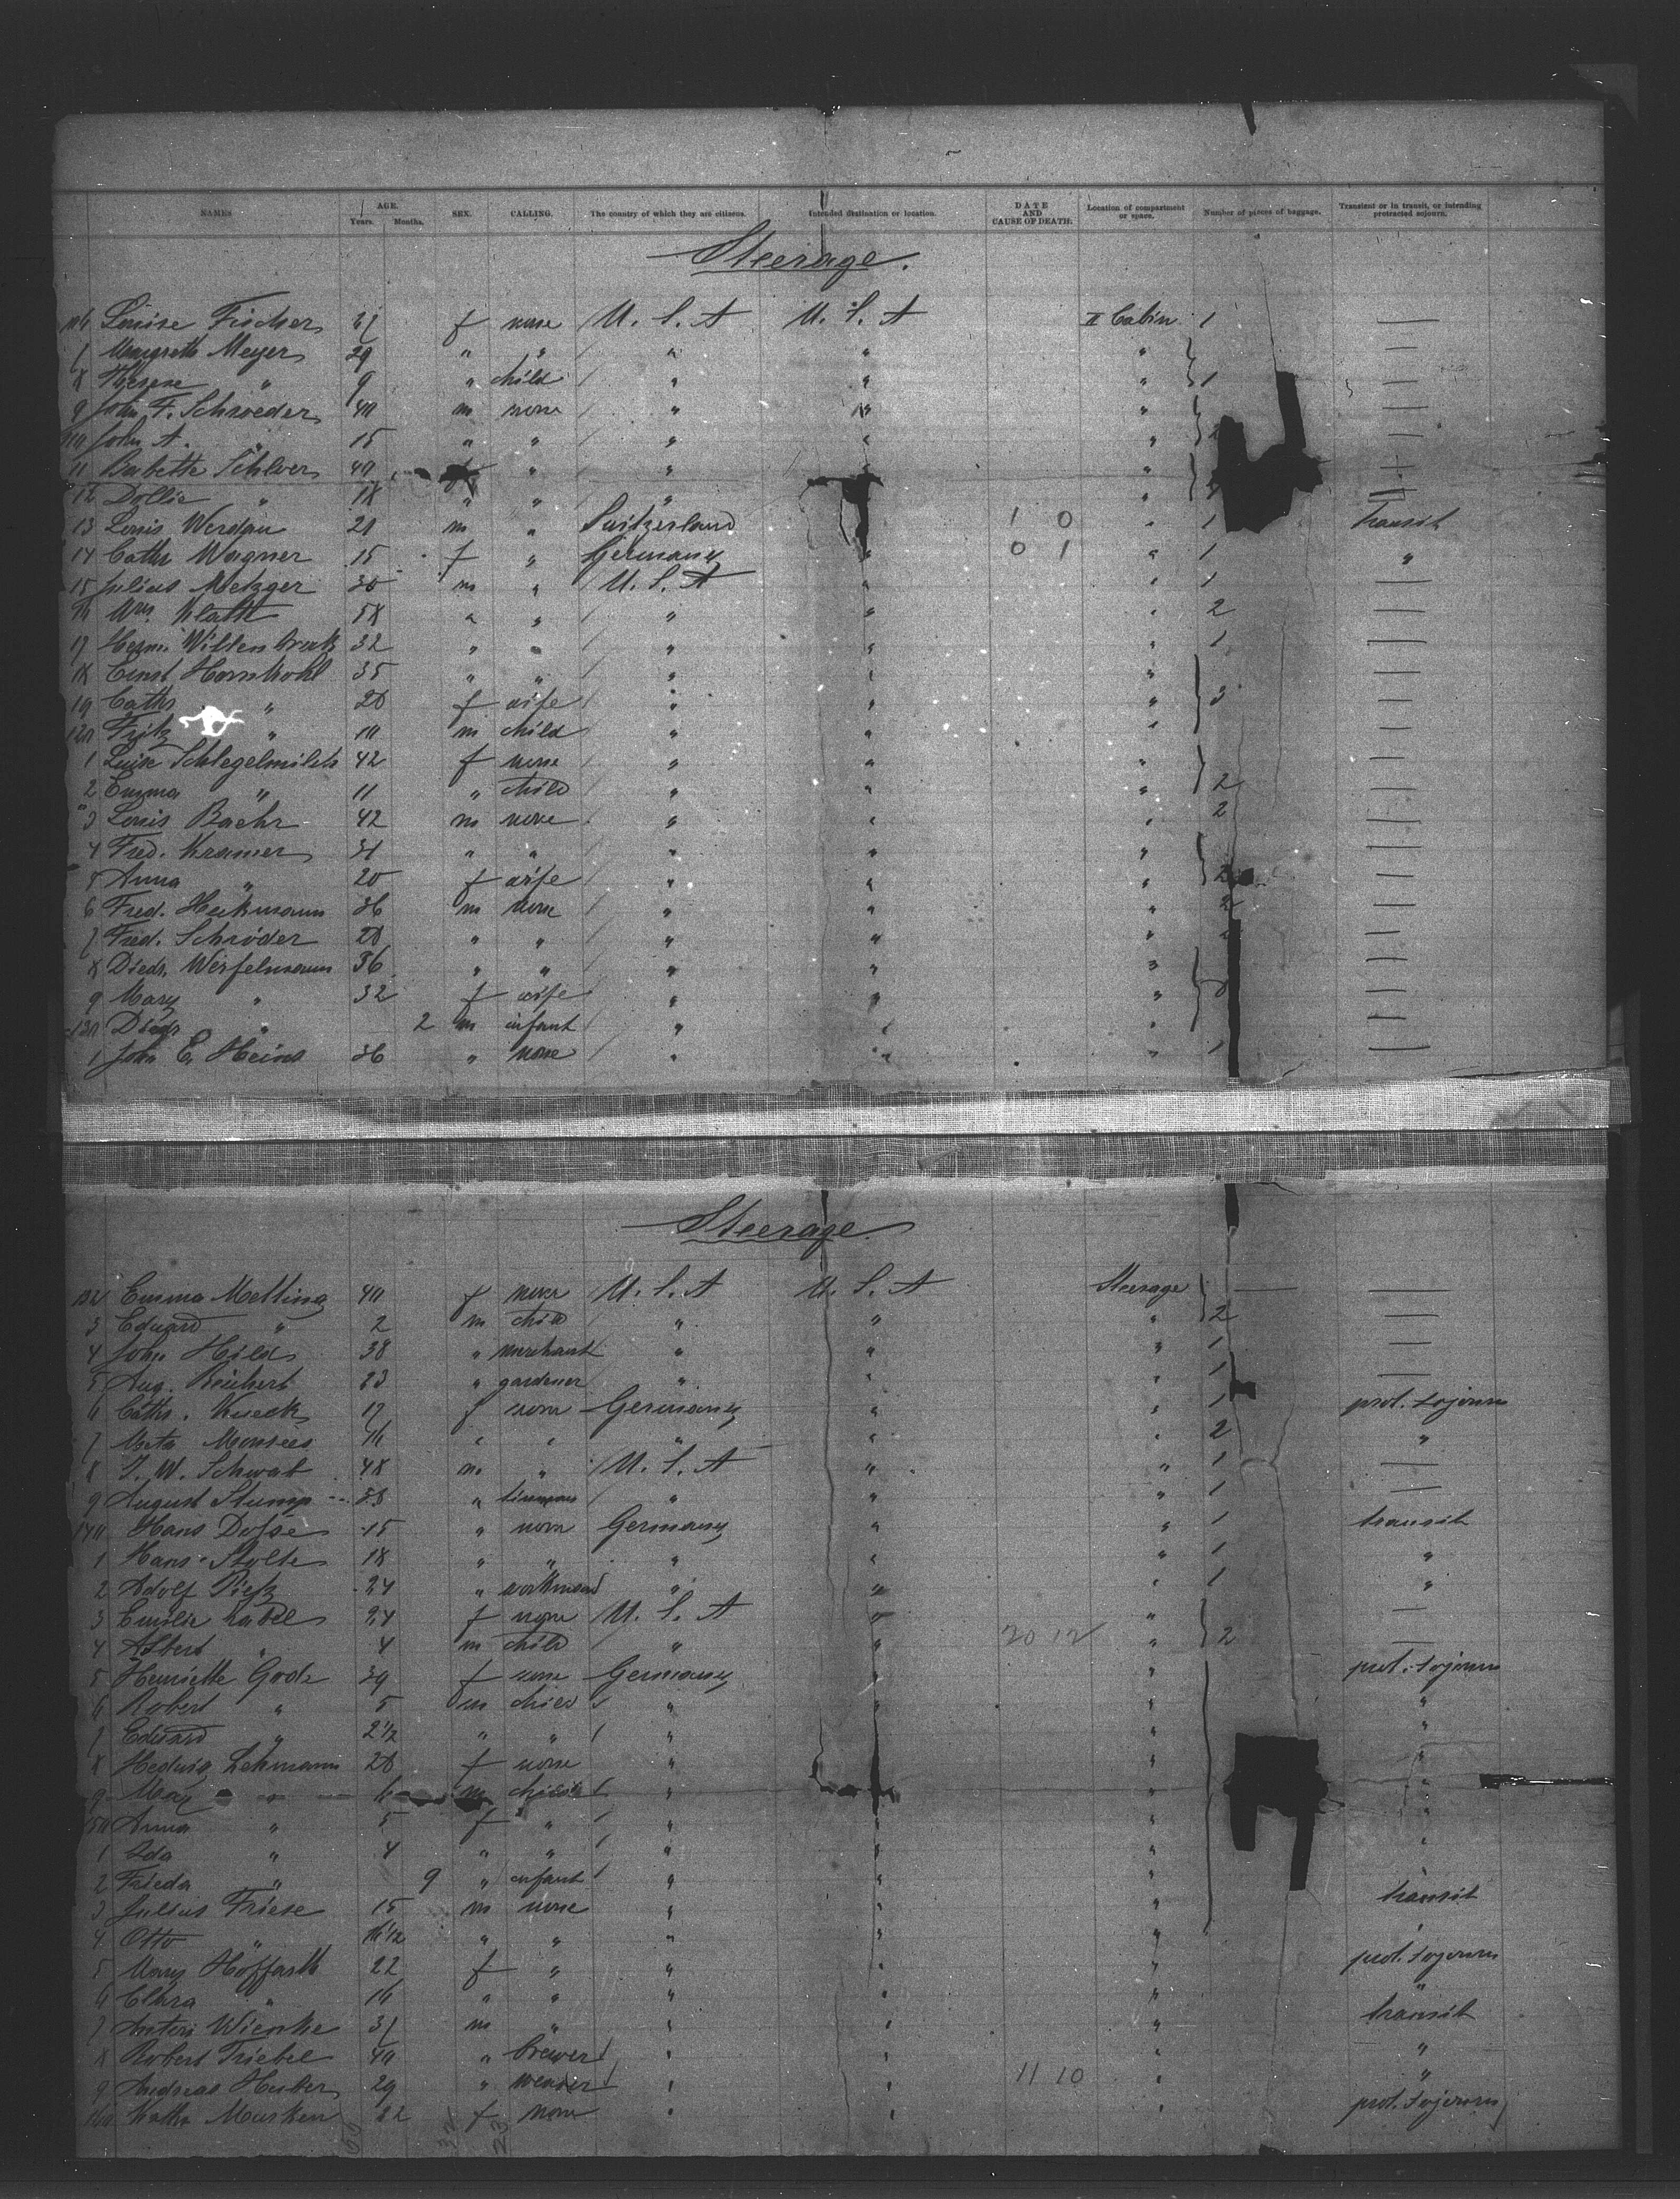 NAMES AGE. Years. Months. SEX. CALLING. The country of which they are citizens. Intended destination or location. DATE AND CAUSE OF DEATH. Location of compartment or space. Number of pieces of baggage. Transient or in transit, or intending protracted sojourn.
Steerage.
Louise Fischer f none U.S.A U.S.A II Cabin 1 —
1 Margreth Meyer 29 " " " " "
8 Therese " 9 " child " " " 1 —
9 John F. Schroeder 40 m none " " " —
110 John A. " 15 " " " " " —
11 Babette 40 " " " " —
12 Dollie " 18 " " " " "
13 Louis Werdau 21 m " Switzerland 1 0 " 1 Transit
14 Cathr Wagner 15 f " Germany " 0 1 " 1 "
15 Julius Metzger 30 m " U.S.A " " 1 —
16 Wm. Klatt 58 " " " " " 2 —
17 Herm. Wiltenbrock 32 " " " " " 1 —
18 Ernst Hornkohl 35 " " " " " —
19 Cathr " 28 f wife " " " 3 —
120 Fritz " 10 m child " " " —
1 Luise Schlegelmilch 42 f none " " " —
2 Emma " 11 " child " " " 2 —
3 Louis Baehr 42 m none " " " 2 —
4 Fred. Kramer 31 " " " " " —
5 Anna " 20 f wife " " " 2 —
6 Fred. Heckmann 36 m none " " " 2 —
7 Fred. Schröder 28 " " " " " —
8 Diedr. Werfelmann 36 " " " " " —
9 Mary " 32 f wife " " " —
130 Diedr " 2 m infant " " " —
1 John E. Heins 36 " none " " " 1 —
Steerage
132 Emma Melling 40 f none U.S.A U.S.A Steerage —
3 Eduard " 2 m child " " " 2 —
4 John Hild 38 " merchant " " " 1 —
5 Aug. Reichert 23 " gardener " " " 1 —
6 Cathr. Kueck 17 f none Germany " " 1 prot. sojourn
7 Meta Monsees 16 " " " " " 2 "
8 J. W. Schwab 48 m " U.S.A " " 1 —
9 August Stump " " " " 1 —
140 Hans Dohse 15 " none Germany " " 1 transit
1 Hans Stolte 18 " " " " " 1 "
2 Adolf 24 " workman " " " 1 "
3 Emilie Label 24 f none U.S.A " " —
4 Albert " 4 m child " " 20 12 " 2 —
5 Henriette Gode 39 f none Germany " " prot. sojourn
6 Robert " 5 m child " " " "
7 Eduard " 2½ " " " " " "
8 Hedwig Lehmann 28 f none " " " "
9 Max " 6 m child " " "
150 Anna " 5 f " " " " "
1 Ida " 4 " " " " " "
2 Frieda " 9 " infant " " " "
3 Julius Friese 15 m none " " " transit
4 Otto " " " " " " "
5 Mary Höffarth 22 f " " " " prot. sojourn
6 Clara " 16 " " " " " "
7 Anton Wienke 31 m " " " " transit
8 Robert Friebel 40 " brewer " " " "
9 Andreas Huber 29 " weaver " " 11 10 " "
160 Kathr Mursken 22 f none " " " prot. sojourn